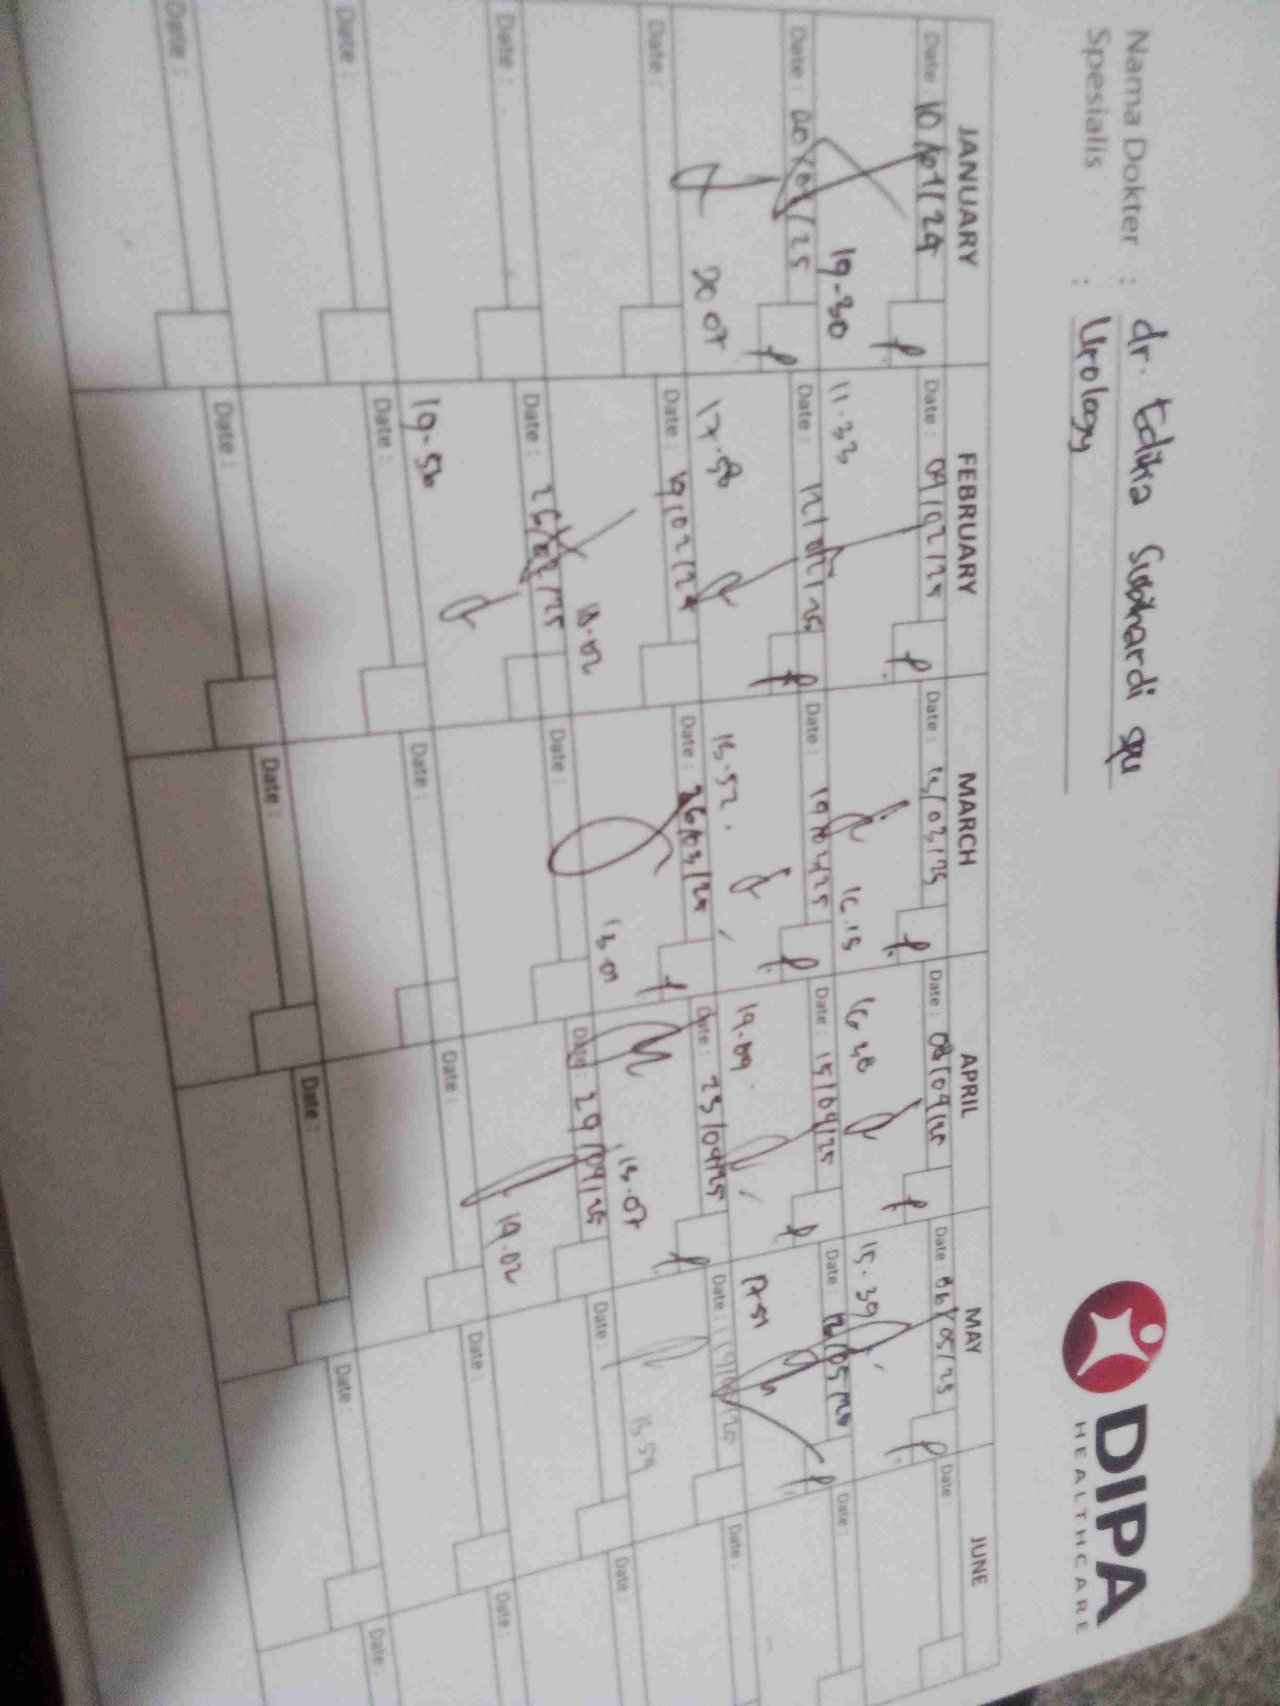 DIPA
HEALTHCARE
Nama Dokter : dr. Edika Sukhardi SpU
Spesialis : Urology
JANUARY FEBRUARY MARCH APRIL MAY JUNE
Date: Date: 09/02/25 Date: 13/03/25 Date: 08/04/25 Date: 06/05/25 Date:
19-30 11.33 16.15 16.38 15.39
Date: 20/01/25 Date: 12/02/25 Date: 19/03/25 Date: 15/04/25 Date: Date:
20 07 17.58 15.52. 19.09. 17.51
Date: Date: 19/02/25 Date: 26/03/25 Date: 23/04/25 Date: Date:
18.02 13.01 15.07 15.59
Date: Date: 26/02/25 Date: Date: 29/04/25 Date: Date:
19.56 19.02
Date: Date: Date: Date: Date: Date:
Date: Date: Date: Date: Date: Date:
Date: